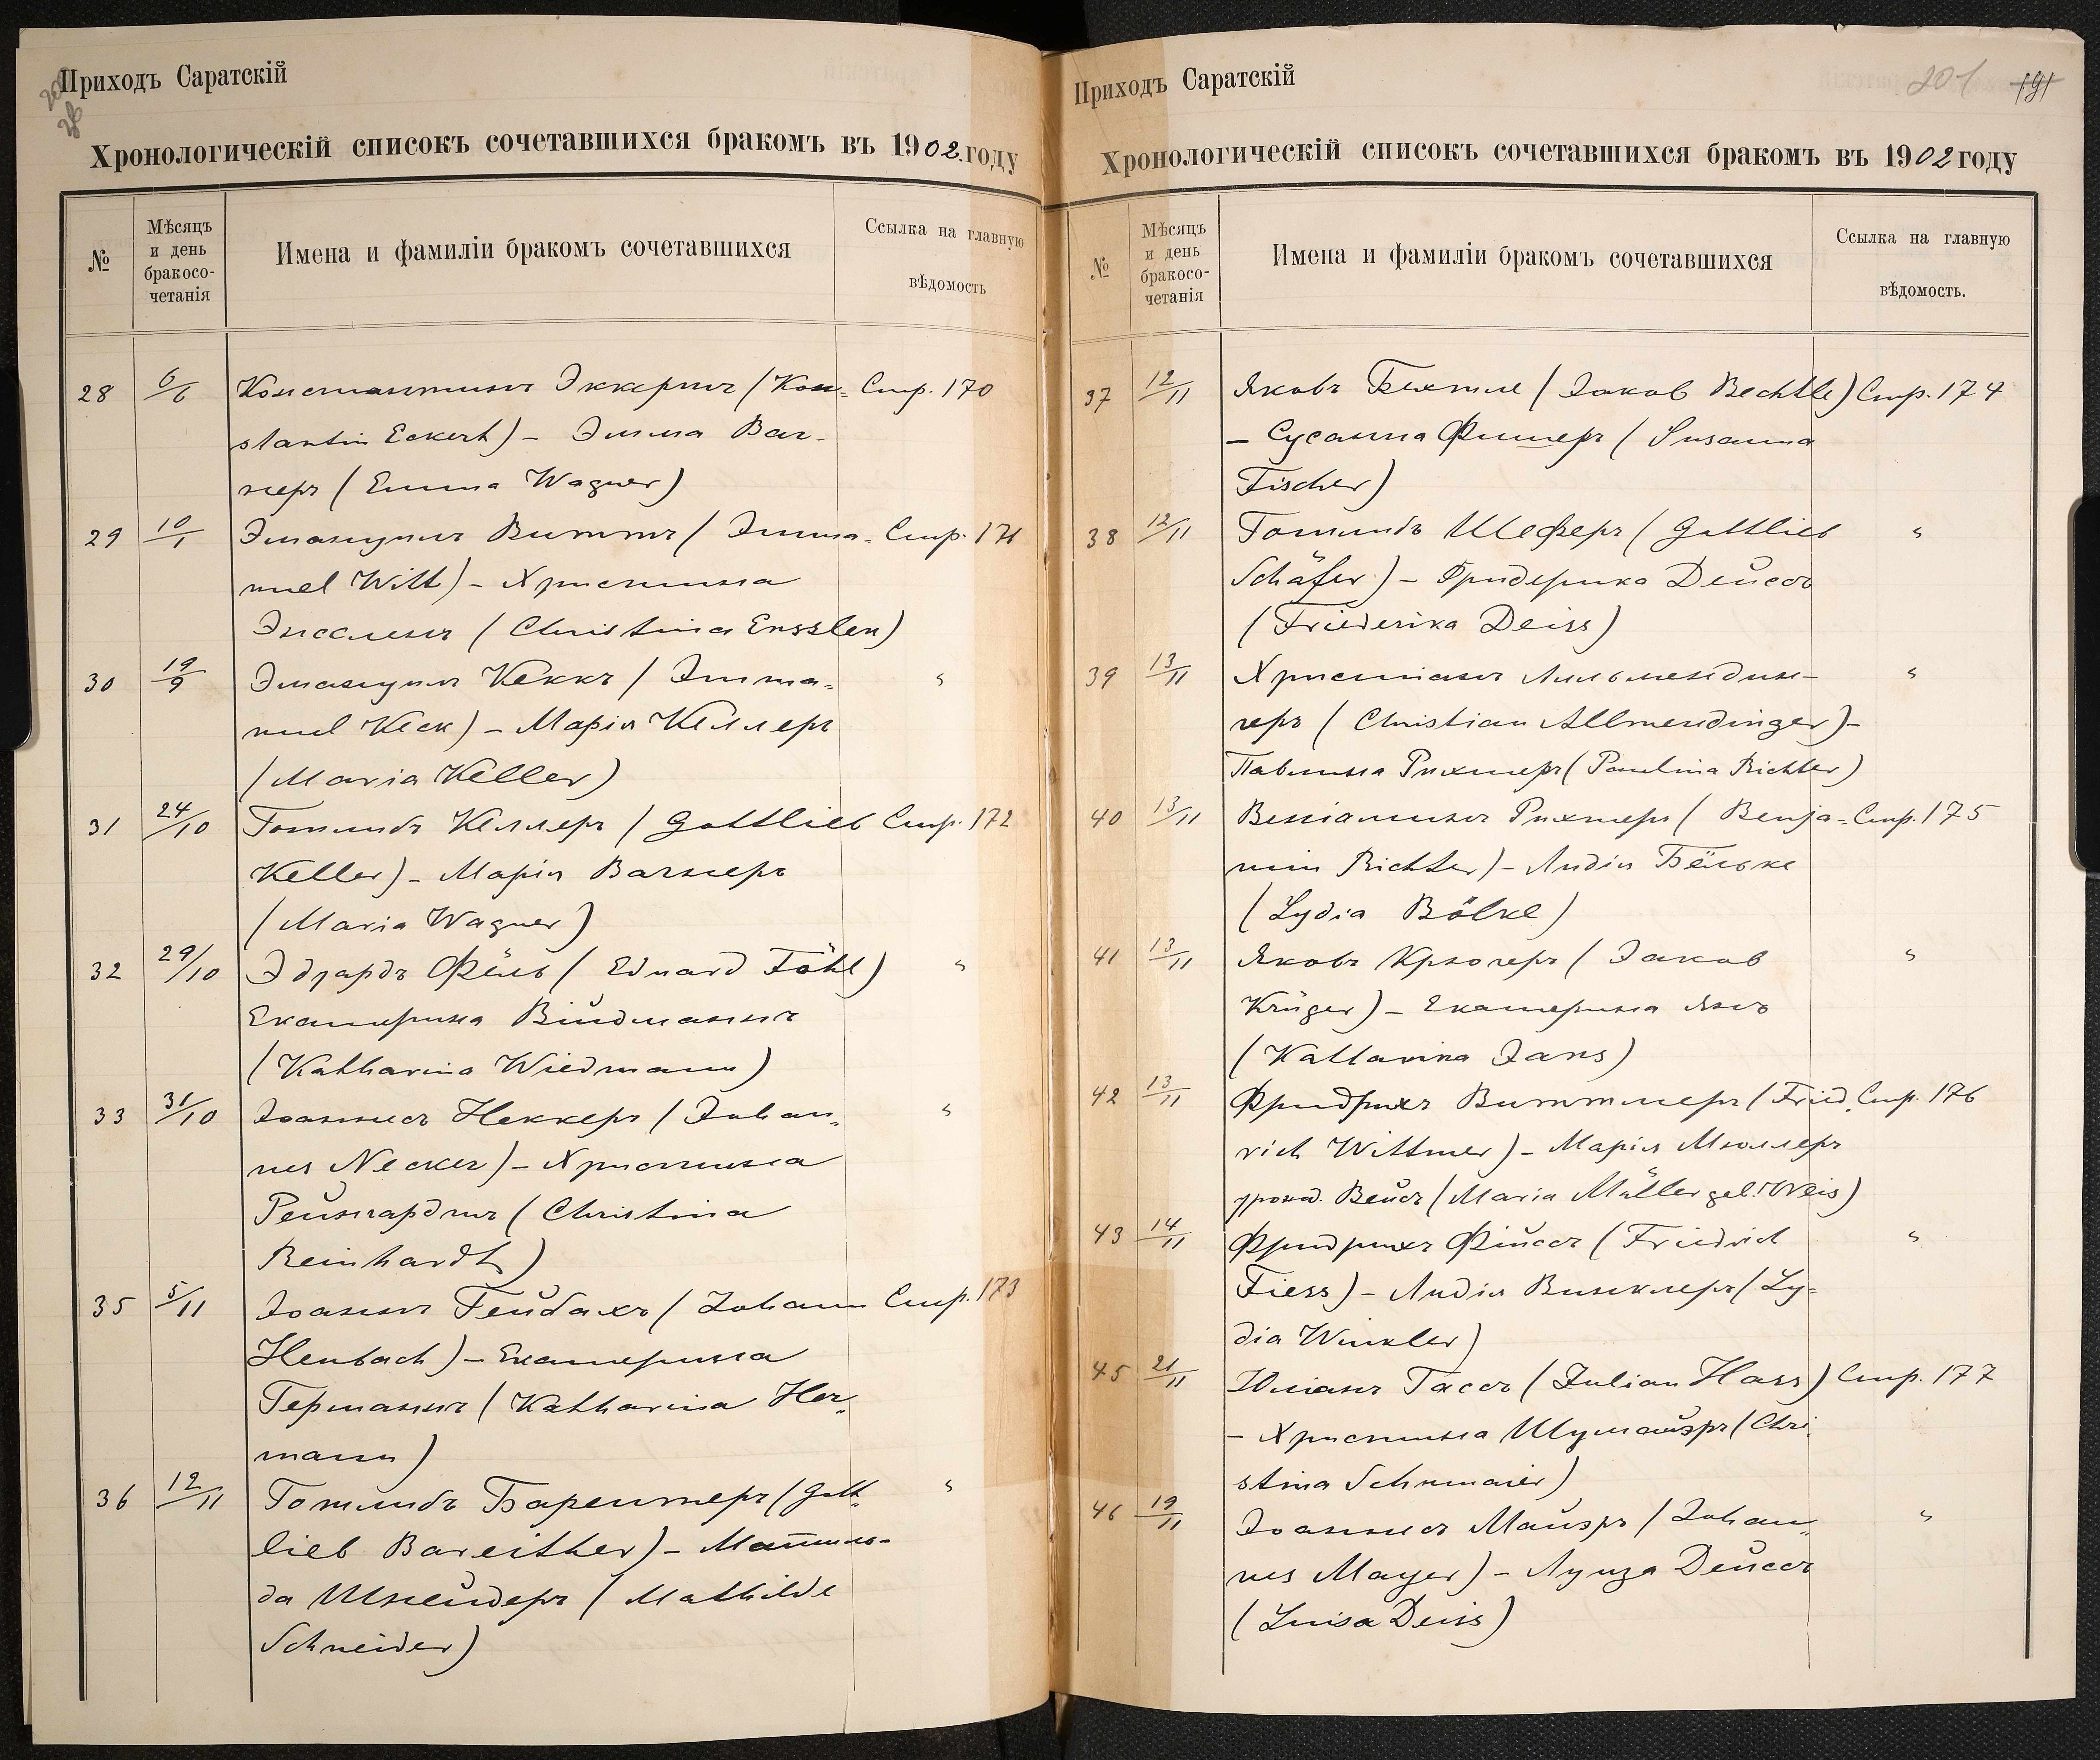 Приходъ Саратскій
Хронологическій списокъ сочетавшихся бракомъ въ 1902 году
№
Мѣсяцъ
и день
бракосо-
четанія
Имена и фамиліи бракомъ сочетавшихся
Ссылка на главную
вѣдомость
28 6/6 Константинъ Эккертъ (Kon= Стр. 170
stantin Eckert) – Эмма Ваг-
неръ (Emma Wagner)
29 10/1 Эмануилъ Виттъ (Imma= Стр. 171
nuel Witt) – Христина
Энсслень (Christina Ensslen)
30 19/9 Эмануилъ Кеккъ (Imma= "
nuel Keck) – Марія Келлеръ
(Maria Keller)
31 24/10 Готлибъ Келлеръ (Gottlieb Стр. 172
Keller) – Марія Вагнеръ
(Maria Wagner)
32 29/10 Эдуардъ Фёль (Eduard Föhl) "
Екатерина Війдманнъ
(Katharina Wiedmann)
33 31/10 Іоаннесъ Неккеръ (Johan= "
nes Necker) – Христина
Рейнгардтъ (Christina
Reinhardt)
35 5/11 Іоаннъ Гейбахъ (Johann Стр. 173
Heubach) – Екатерина
Германнъ (Katharina Her=
mann)
36 12/11 Готлибъ Барейтеръ (Gott= "
lieb Bareither) – Матиль-
да Шнейдеръ (Mathilde
Schneider)
Приходъ Саратскій
201 191
Хронологическій списокъ сочетавшихся бракомъ въ 1902 году
№
Мѣсяцъ
и день
бракосо-
четанія
Имена и фамиліи бракомъ сочетавшихся
Ссылка на главную
вѣдомость.
37 12/11 Яковъ Бехтле (Jakob Bechtle) Стр. 174
– Сусанна Фишеръ (Susanna
Fischer)
38 12/11 Готлибъ Шеферъ (Gottlieb "
Schäfer) – Фридерика Дейссъ
(Friederika Deiss)
39 13/11 Христіанъ Алльмендин- "
геръ (Christian Allmendinger) –
Павлина Рихтеръ (Paulina Richter)
40 13/11 Веніаминъ Рихтеръ (Benja= Стр. 175
min Richter) – Лидія Бёльке
(Lydia Bölke)
41 13/11 Яковъ Крюгеръ (Jakob "
Krüger) – Екатерина Янсъ
(Katharina Jans)
42 13/11 Фридрихъ Виттмеръ (Fried= Стр. 176
rich Wittmer) – Марія Мюллеръ
урожд. Вейсъ (Maria Müller geb. Weis)
43 14/11 Фридрихъ Фійссъ (Friedrich "
Fiess) – Лидія Винклеръ (Ly=
dia Winkler)
45 21/11 Юліанъ Гассъ (Julian Hass) Стр. 177
– Христина Шумайэръ (Chri=
stina Schumaier)
46 19/11 Іоаннесъ Майэръ (Johan= "
nes Mayer) – Луиза Дейссъ
(Luisa Deiss)